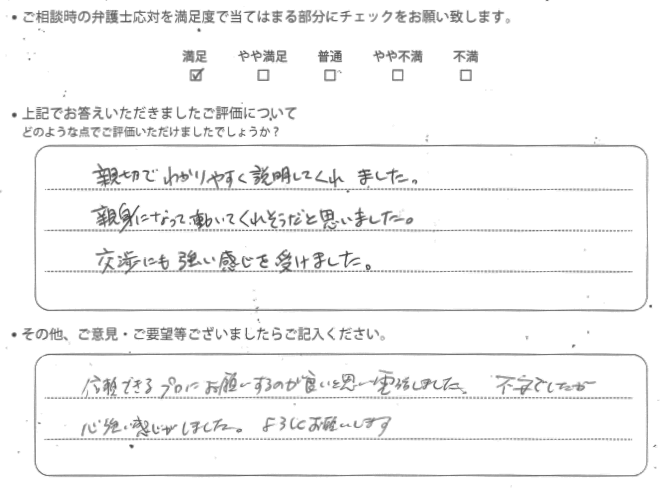 • ご相談時の弁護士応対を満足度で当てはまる部分にチェックをお願い致します。
満足 やや満足 普通 やや不満 不満
☑ ☐ ☐ ☐ ☐
• 上記でお答えいただきましたご評価について
どのような点でご評価いただけましたでしょうか？
親切でわかりやすく説明してくれました。
親身になって動いてくれそうだと思いました。
交渉にも強い感じを受けました。
• その他、ご意見・ご要望等ございましたらご記入ください。
信頼できるプロにお願いするのが良いと思い電話しました。 不安でしたが
心強い感じがしました。よろしくお願いします